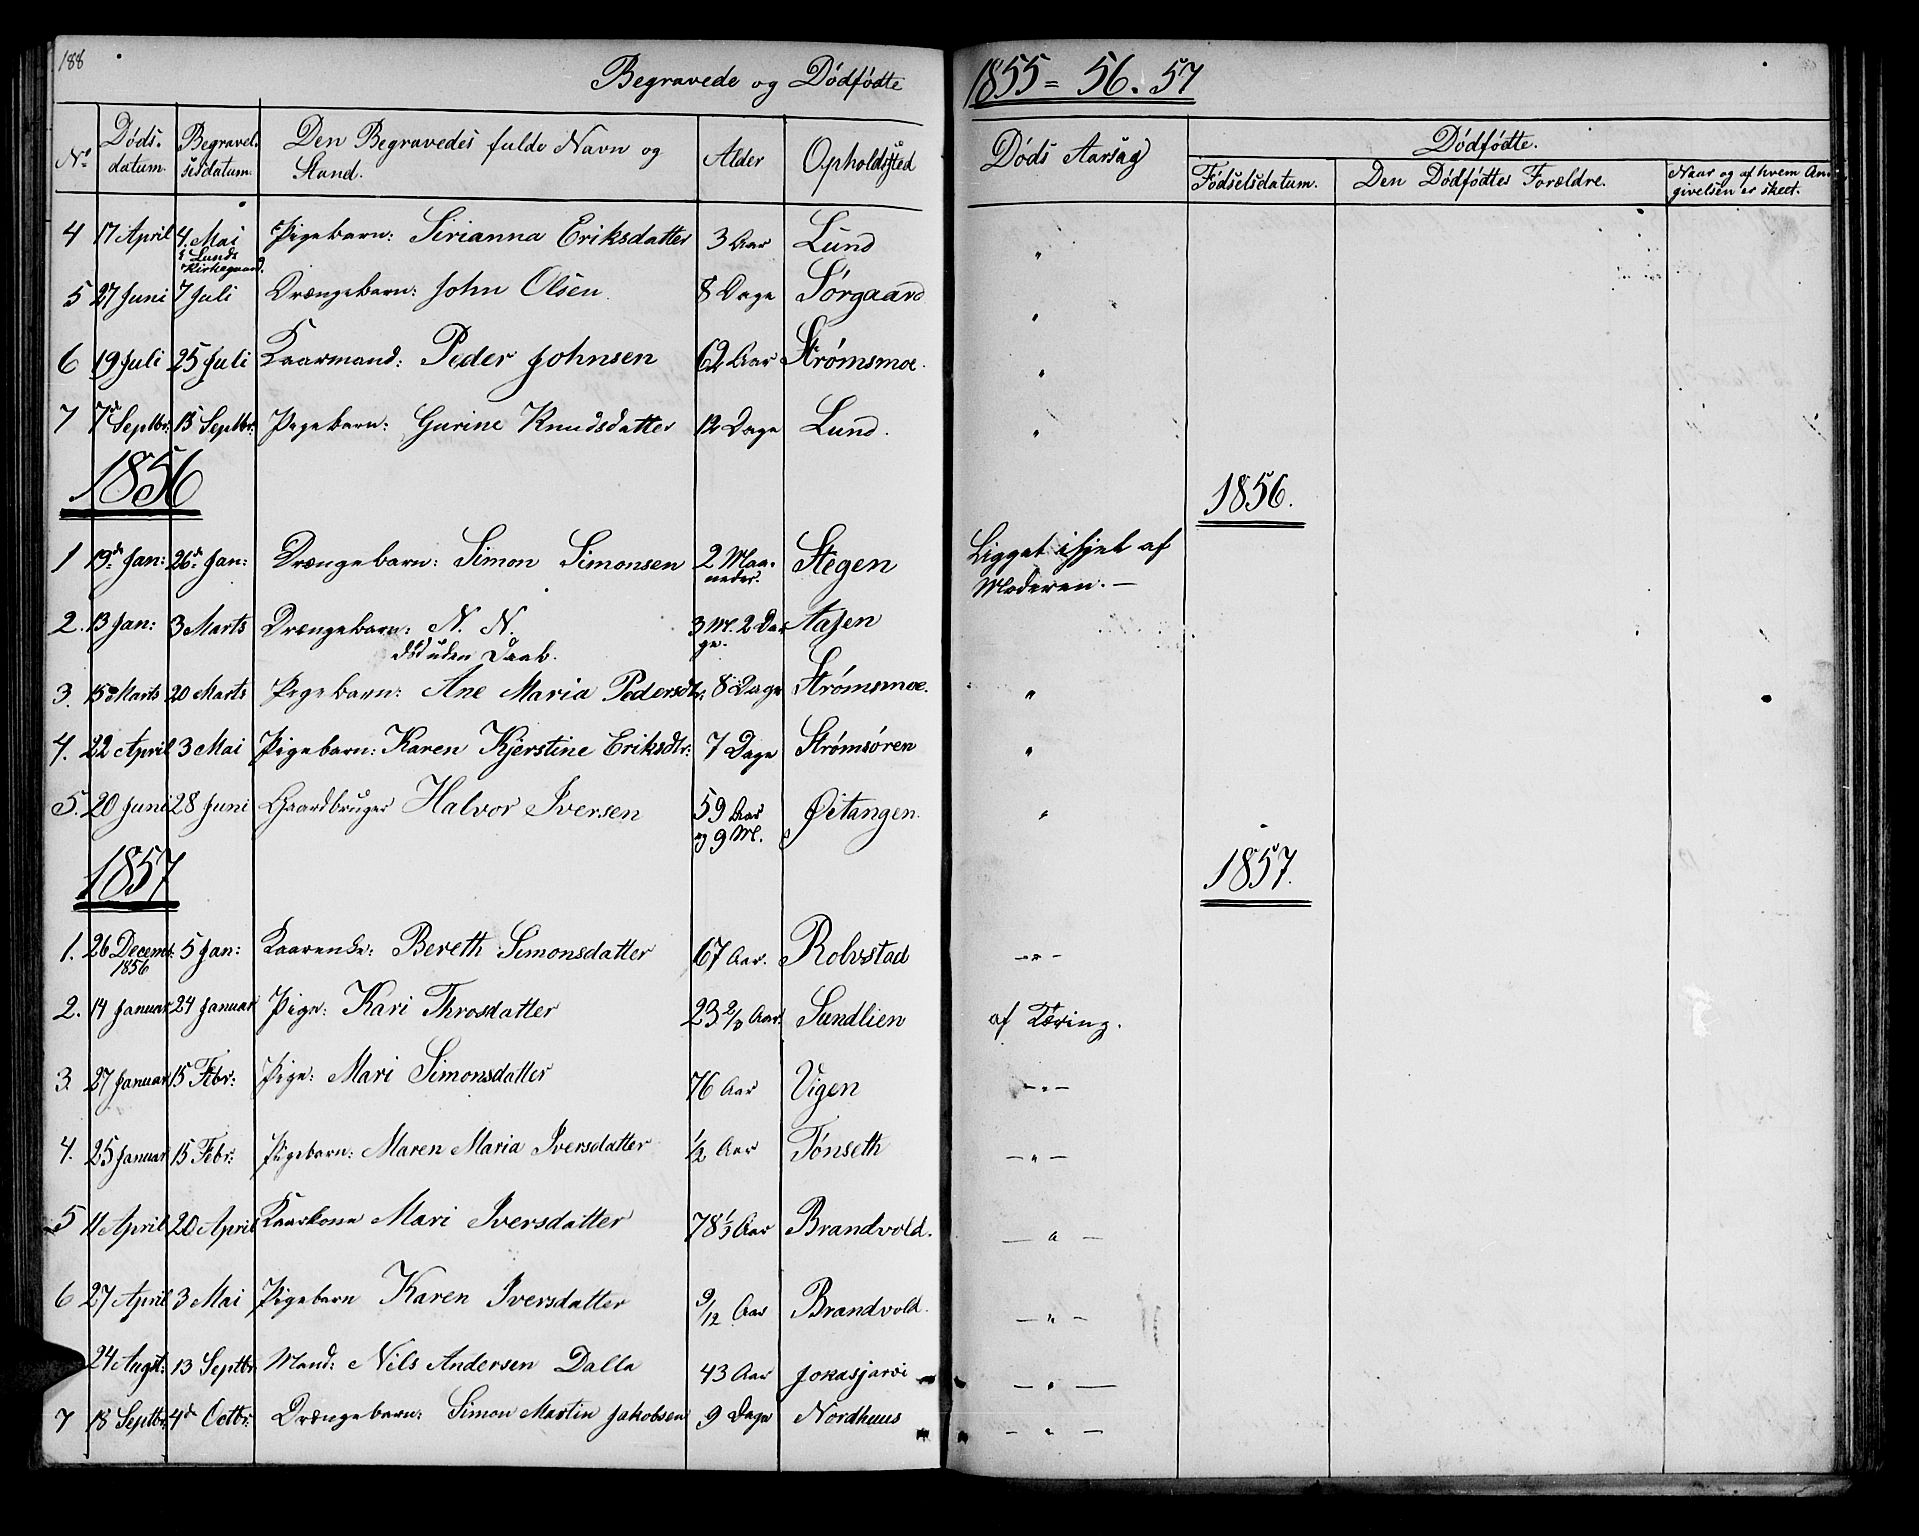 188
Begravede og Dødfødte 1855 = 56. 57
No Dødsdatum. Begravelsesdatum. Den Begravedes fulde Navn og Stand. Alder Opholdssted Døds Aarsag Dødfødte.
Fødselsdatum. Den Dødfødtes Forældre. Naar og af hvem Angivelsen er skeet.
4 17 April 4. Mai Pigebarn: Sirianna Eriksdatter 3 Aar Lund "
i Lunds Kirkegaard.
5 27 Juni 7 Juli Drængebarn: John Olsen. 8 Dage Sørgaard "
6 19 Juli 25 Juli Kaarmand: Peder Johnsen 62 Aar Strømsmoe. "
7 7de Septbr: 15 Septbr: Pigebarn: Gurine Knudsdatter 12 Dage Lund. "
1856 1856.
1 19de Jan: 26de Jan: Drængebarn: Simon Simonsen 2 Maaneder. Stegen Ligget ihjel af
Moderen. —
2. 13 Jan: 3 Marts Drængebarn: N. N. 3 M. 2 Dage. Aasen
død uden Daab.
3. 15 Marts 20 Marts Pigebarn: Ane Maria Pedersdtr: 8 Dage Strømsmoe. "
4. 22 April 3 Mai Pigebarn: Karen Kjerstine Eriksdtr: 7 Dage Strømsøren "
5. 20 Juni 28 Juni Gaardbruger Halvor Iversen 59 Aar og 9 M. Øitangen. "
1857 1857.
1. 26 Decemb: 1856 5 Jan: Kaarenke: Bereth Simonsdatter 67 Aar. Rolvstad — " —
2. 14 Januar 24 Januar Pige: Kari Throsdatter 23 2/3 Aar. Sundlien af Tæring.
3. 27 Januar 15 Febr: Pige: Mari Simonsdatter 76 Aar Vigen — " —
4. 25 Januar 15 Febr: Pigebarn: Maren Maria Iversdatter 1/2 Aar Tønseth — " —
5 11 April 20 April Kaarkone Mari Iversdatter 78 1/3 Aar Brandvold. — " —
6 27 April 3 Mai Pigebarn Karen Iversdatter 9/12 Aar Brandvold. — " —
24 Augst: 13 Septbr: Mand: Nils Andersen Dalla 43 Aar Jokasjarvi — " —
7 18 Septbr: 4de Octbr: Drængebarn: Simon Martin Jakobsen 9 Dage Nordhuus — " —